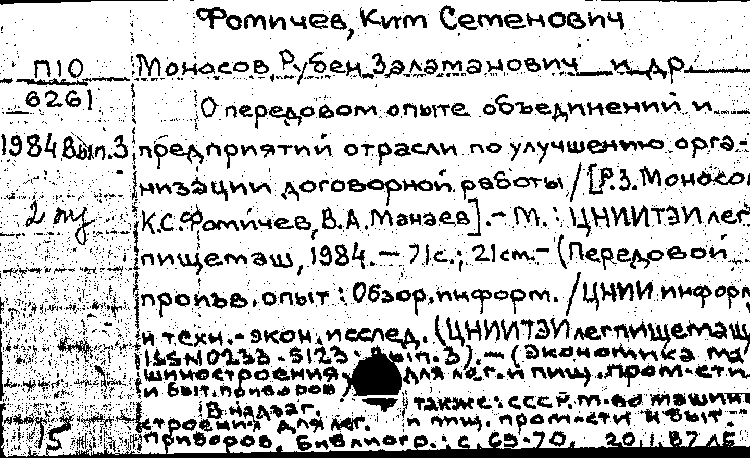 Фомичев, Ким Семенович
П10 Монасов, Рубен Заламанович и др.
6261 О передовом опыте объединений и
1984 Вып.3 предприятий отрасли по улучшению орга-
низации договорной работы / [Р.З. Монасо
К.С. Фомичев, В.А. Манаев]. - М.: ЦНИИТЭИлег
пищемаш, 1984. - 71с.; 21см. - (Передовой
произв. опыт: Обзор. информ. / ЦНИИ информ
и техн.-экон. исслед. (ЦНИИТЭИлегпищемаш,
ISSN 0233-5123; Вып. 3). - (Экономика ма
шиностроения для лег. и пищ. пром-сти
и быт. приборов)
В надзаг. также: СССР. М-во машин
строения для лег. и пищ. пром-сти и быт.
15 приборов. Библиогр.: с. 69-70. 20.1.87